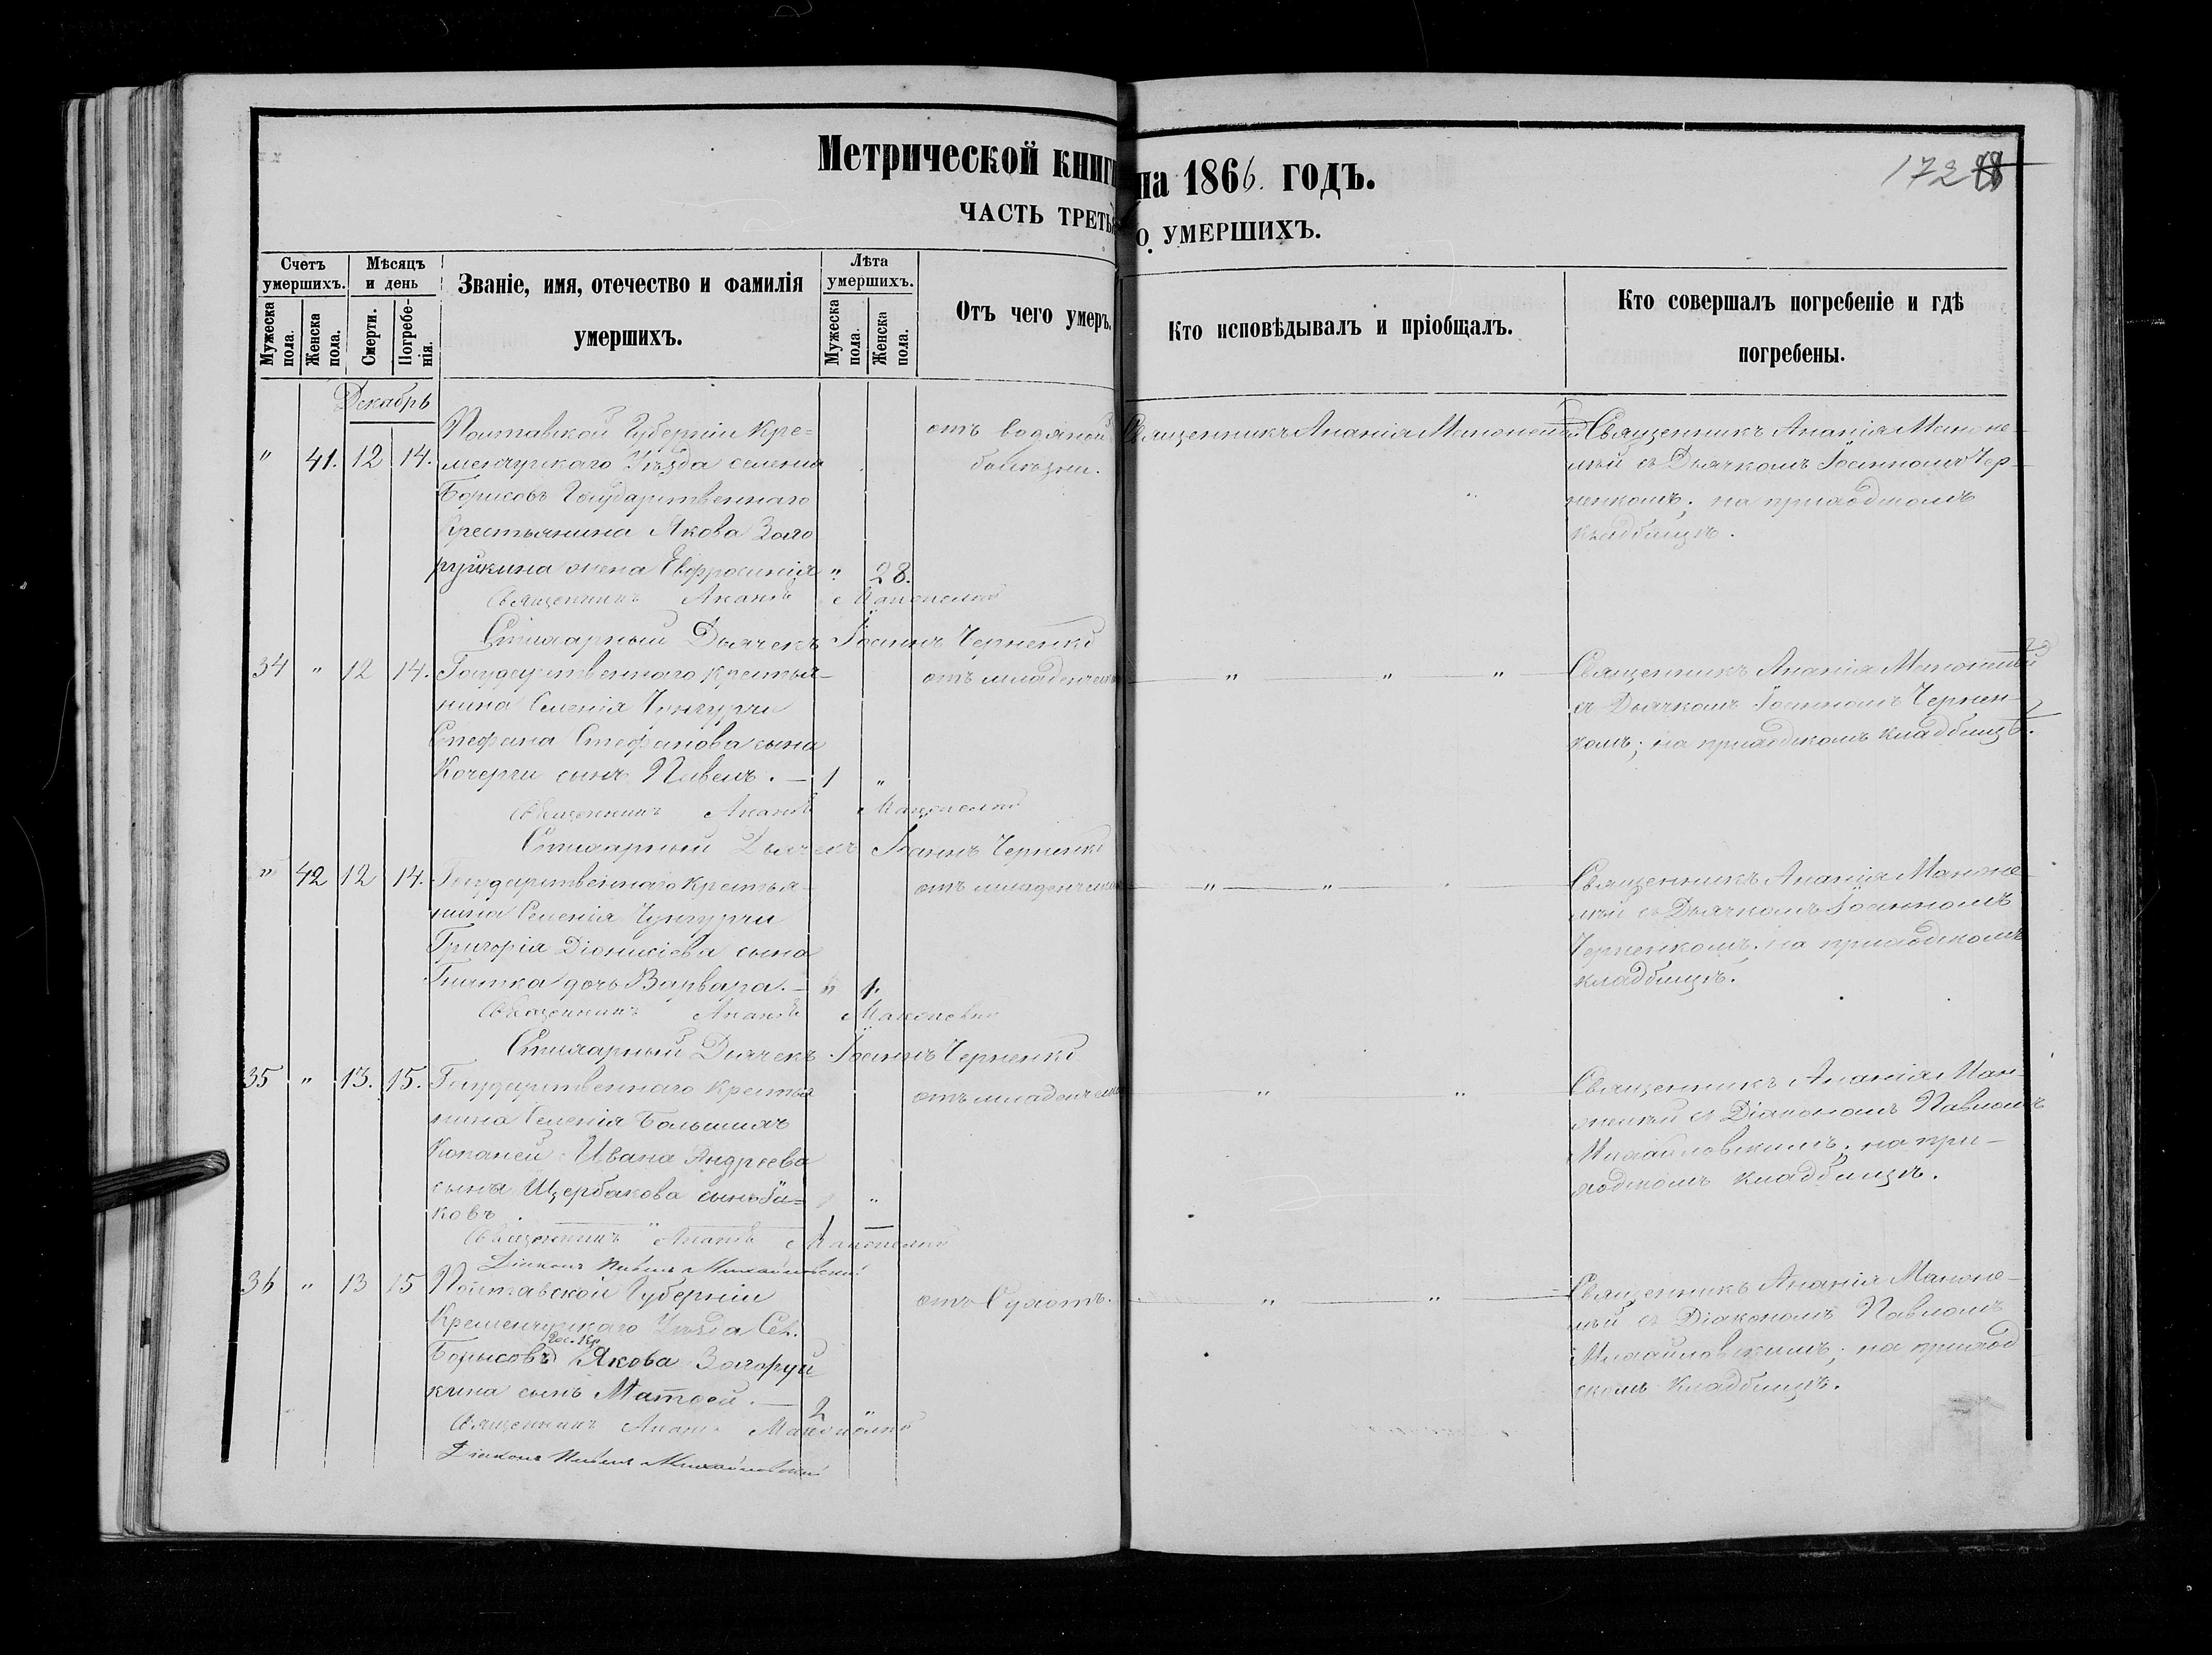 Метрической книги на 1866. годъ.
172
ЧАСТЬ ТРЕТЬЯ О УМЕРШИХЪ.
Счетъ умершихъ.
Мужеска пола.
Женска пола.
Мѣсяцъ и день
Смерти.
Погребенія.
Званіе, имя, отечество и фамилія умершихъ.
Лѣта умершихъ.
Мужеска пола.
Женска пола.
Отъ чего умеръ.
Кто исповѣдывалъ и пріобщалъ.
Кто совершалъ погребеніе и гдѣ погребены.
Декабрь
" 41. 12 14.
Полтавской Губерніи Кре=
менчугскаго Уѣзда селенія
Борисовъ Государственнаго
Крестьянина Якова Заго
руйкина жена Евфросинія " 28.
отъ водяной
болѣзни.
Священникъ Ананія
Священникъ Ананія
с Дьячкомъ Іоанномъ Чер-
ненкомъ; на приходскомъ
кладбищѣ.
Священникъ Ананія
Стихарный Дьячекъ Іоаннъ Черненко
34 " 12 14.
Государственнаго крестья-
нина Селенія Чунгурчи
Стефана Стефанова сына
Кочерги сынъ Павелъ. — 1 "
отъ младенческ
" " "
Священникъ Ананія
съ Дьячкомъ Іоанномъ Чернен-
комъ; на приходскомъ кладбищѣ.
Священникъ Ананія
Стихарный Дьячекъ Іоаннъ Черненко
" 42 12 14.
Государственнаго крестья-
нина Селенія Чунгурчи
Григорія Діонисіева сына
Гнатка дочь Варвара. — " 1.
отъ младенческ
" "
Священникъ Ананія
с Дьячкомъ Іоанномъ
Черненкомъ; на приходскомъ
кладбищѣ.
Священникъ Ананія
Стихарный Дьячекъ Іоаннъ Черненко
35 " 13. 15.
Государственнаго крестья
нина Селенія Большихъ
Копаней Ивана Андреева
сына Щербакова сынъ Іа=
ковъ. 1 "
отъ младенческ
" "
Священникъ Ананія
съ Діакономъ Павломъ
Михайловскимъ; на при-
ходскомъ кладбищѣ.
Священникъ Ананія
Діаконъ Павелъ Михайловскій
36 " 13 15
Полтавской Губерніи
Кременчугскаго Уѣзда Сел.
Гос. Кр.
Борысовъ Якова Загоруй
кина сынъ Матѳей. — 2 "
отъ Сухотъ.
" "
Священникъ Ананія
съ Діакономъ Павломъ
Михайловскимъ; на приход
скомъ кладбищѣ.
Священникъ Ананія
Діаконъ Павелъ Михайловскій